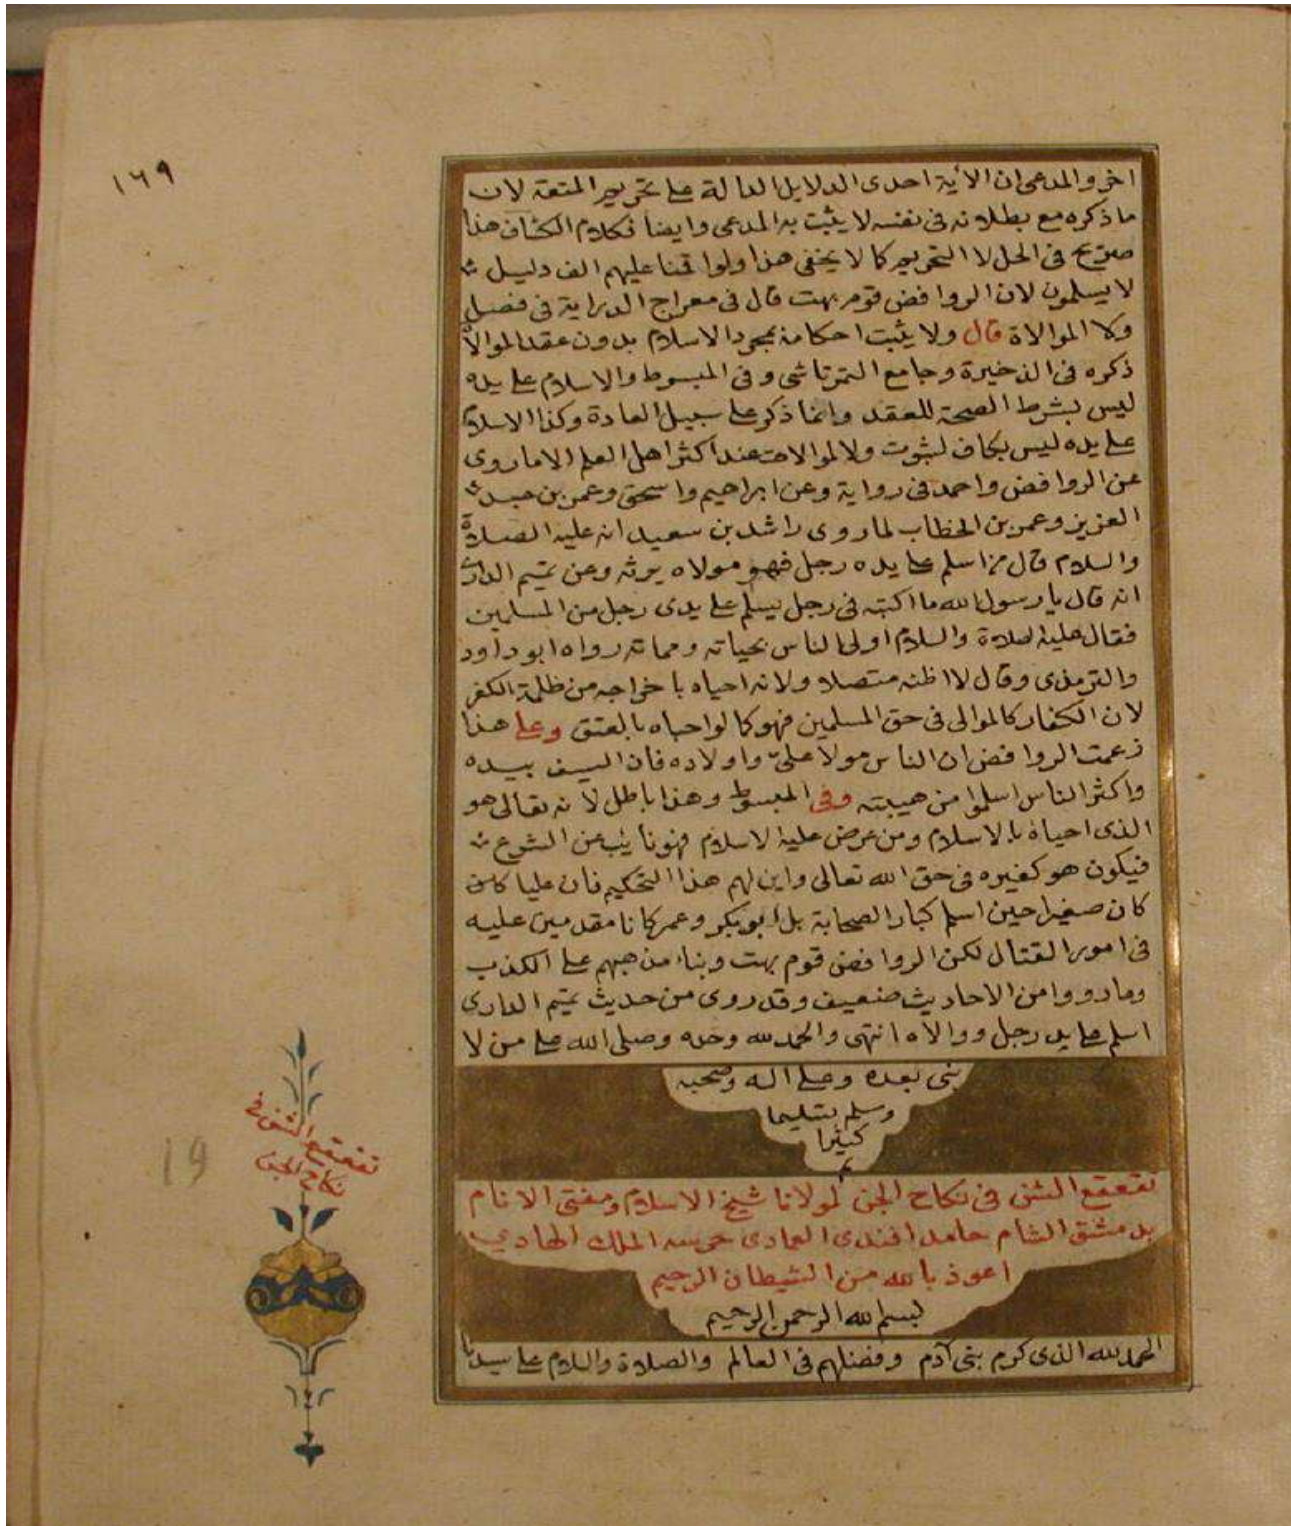 ١٦٩
اخر والمدعى ان الأية احدى الدلايل الدالة على تحريم المتعة لان
ما ذكره مع بطلانه فى نفسه لا يثبت به المدعى وايضا فكلام الكشاف هذا
صريح فى الحل لا التحريم كما لا يخفى هذا ولو اقمنا عليهم الف دليل
لا يسلمون لان الروافض قوم بهت قال فى معراج الدراية فى فصل
ولاء الموالاة قال ولا يثبت احكامه بمجرد الاسلام بدون عقد الموالاة
ذكره فى الذخيرة وجامع التمرتاشى وفى المبسوط والاسلام على يده
ليس بشرط الصحة للعقد وانما ذكر على سبيل العادة وكذا الاسلام
على يده ليس بكاف لثبوت ولا لموالات عند اكثر اهل العلم الا ما روى
عن الروافض واحمد فى رواية وعن ابراهيم واسحق وعمر بن عبد
العزيز وعمر بن الخطاب لما روى راشد بن سعيد انه عليه الصلاة
والسلام قال من اسلم على يده رجل فهو مولاه يرثه وعن تميم الدارى
انه قال يا رسول الله ما اكتبه فى رجل يسلم على يدى رجل من المسلمين
فقال عليه الصلاة والسلام اولى الناس بحياته ومماته رواه ابو داود
والترمذى وقال لا اظنه متصلا ولانه احياه باخراجه من ظلمة الكفر
لان الكفار كالموالى فى حق المسلمين فهو كما لو احياه بالعتق وعلى هذا
زعمت الروافض ان الناس مولا علىّ واولاده فان السيف بيده
واكثر الناس اسلموا من هيبته وفى المبسوط وهذا باطل لانه تعالى هو
الذى احياه بالاسلام ومن عرض عليه الاسلام فهو نايب عن الشرع
فيكون هو كغيره فى حق الله تعالى واين لهم هذا التحكيم فان عليا كان
كان صغيرا حين اسلم كبار الصحابة بل ابو بكر وعمر كانا مقدمين عليه
فى امور القتال لكن الروافض قوم بهت وبناء مذهبهم على الكذب
وما رووا من الاحاديث ضعيف وقد روى من حديث تميم الدارى
اسلم على يد رجل ووالاه انتهى والحمد لله وحده وصلى الله على من لا
نبى بعده وعلى اله وصحبه
وسلم تسليما
كثيرا
م
تقعقع الشن فى نكاح الجن لمولانا شيخ الاسلام ومفتى الانام
بدمشق الشام حامد افندى العمادى حرسه الملك الهادي
اعوذ بالله من الشيطان الرجيم
بسم الله الرحمن الرحيم
الحمد لله الذى كرم بنى آدم وفضلهم فى العالم والصلاة والسلام على سيدنا
تقعقع الشن فى
نكاح الجن
19